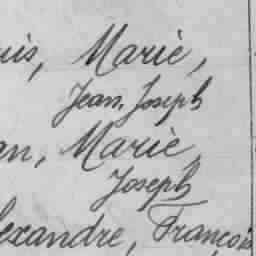 uis, Marie,
Jean, Joseph
an, Marie,
Joseph
lexandre, François